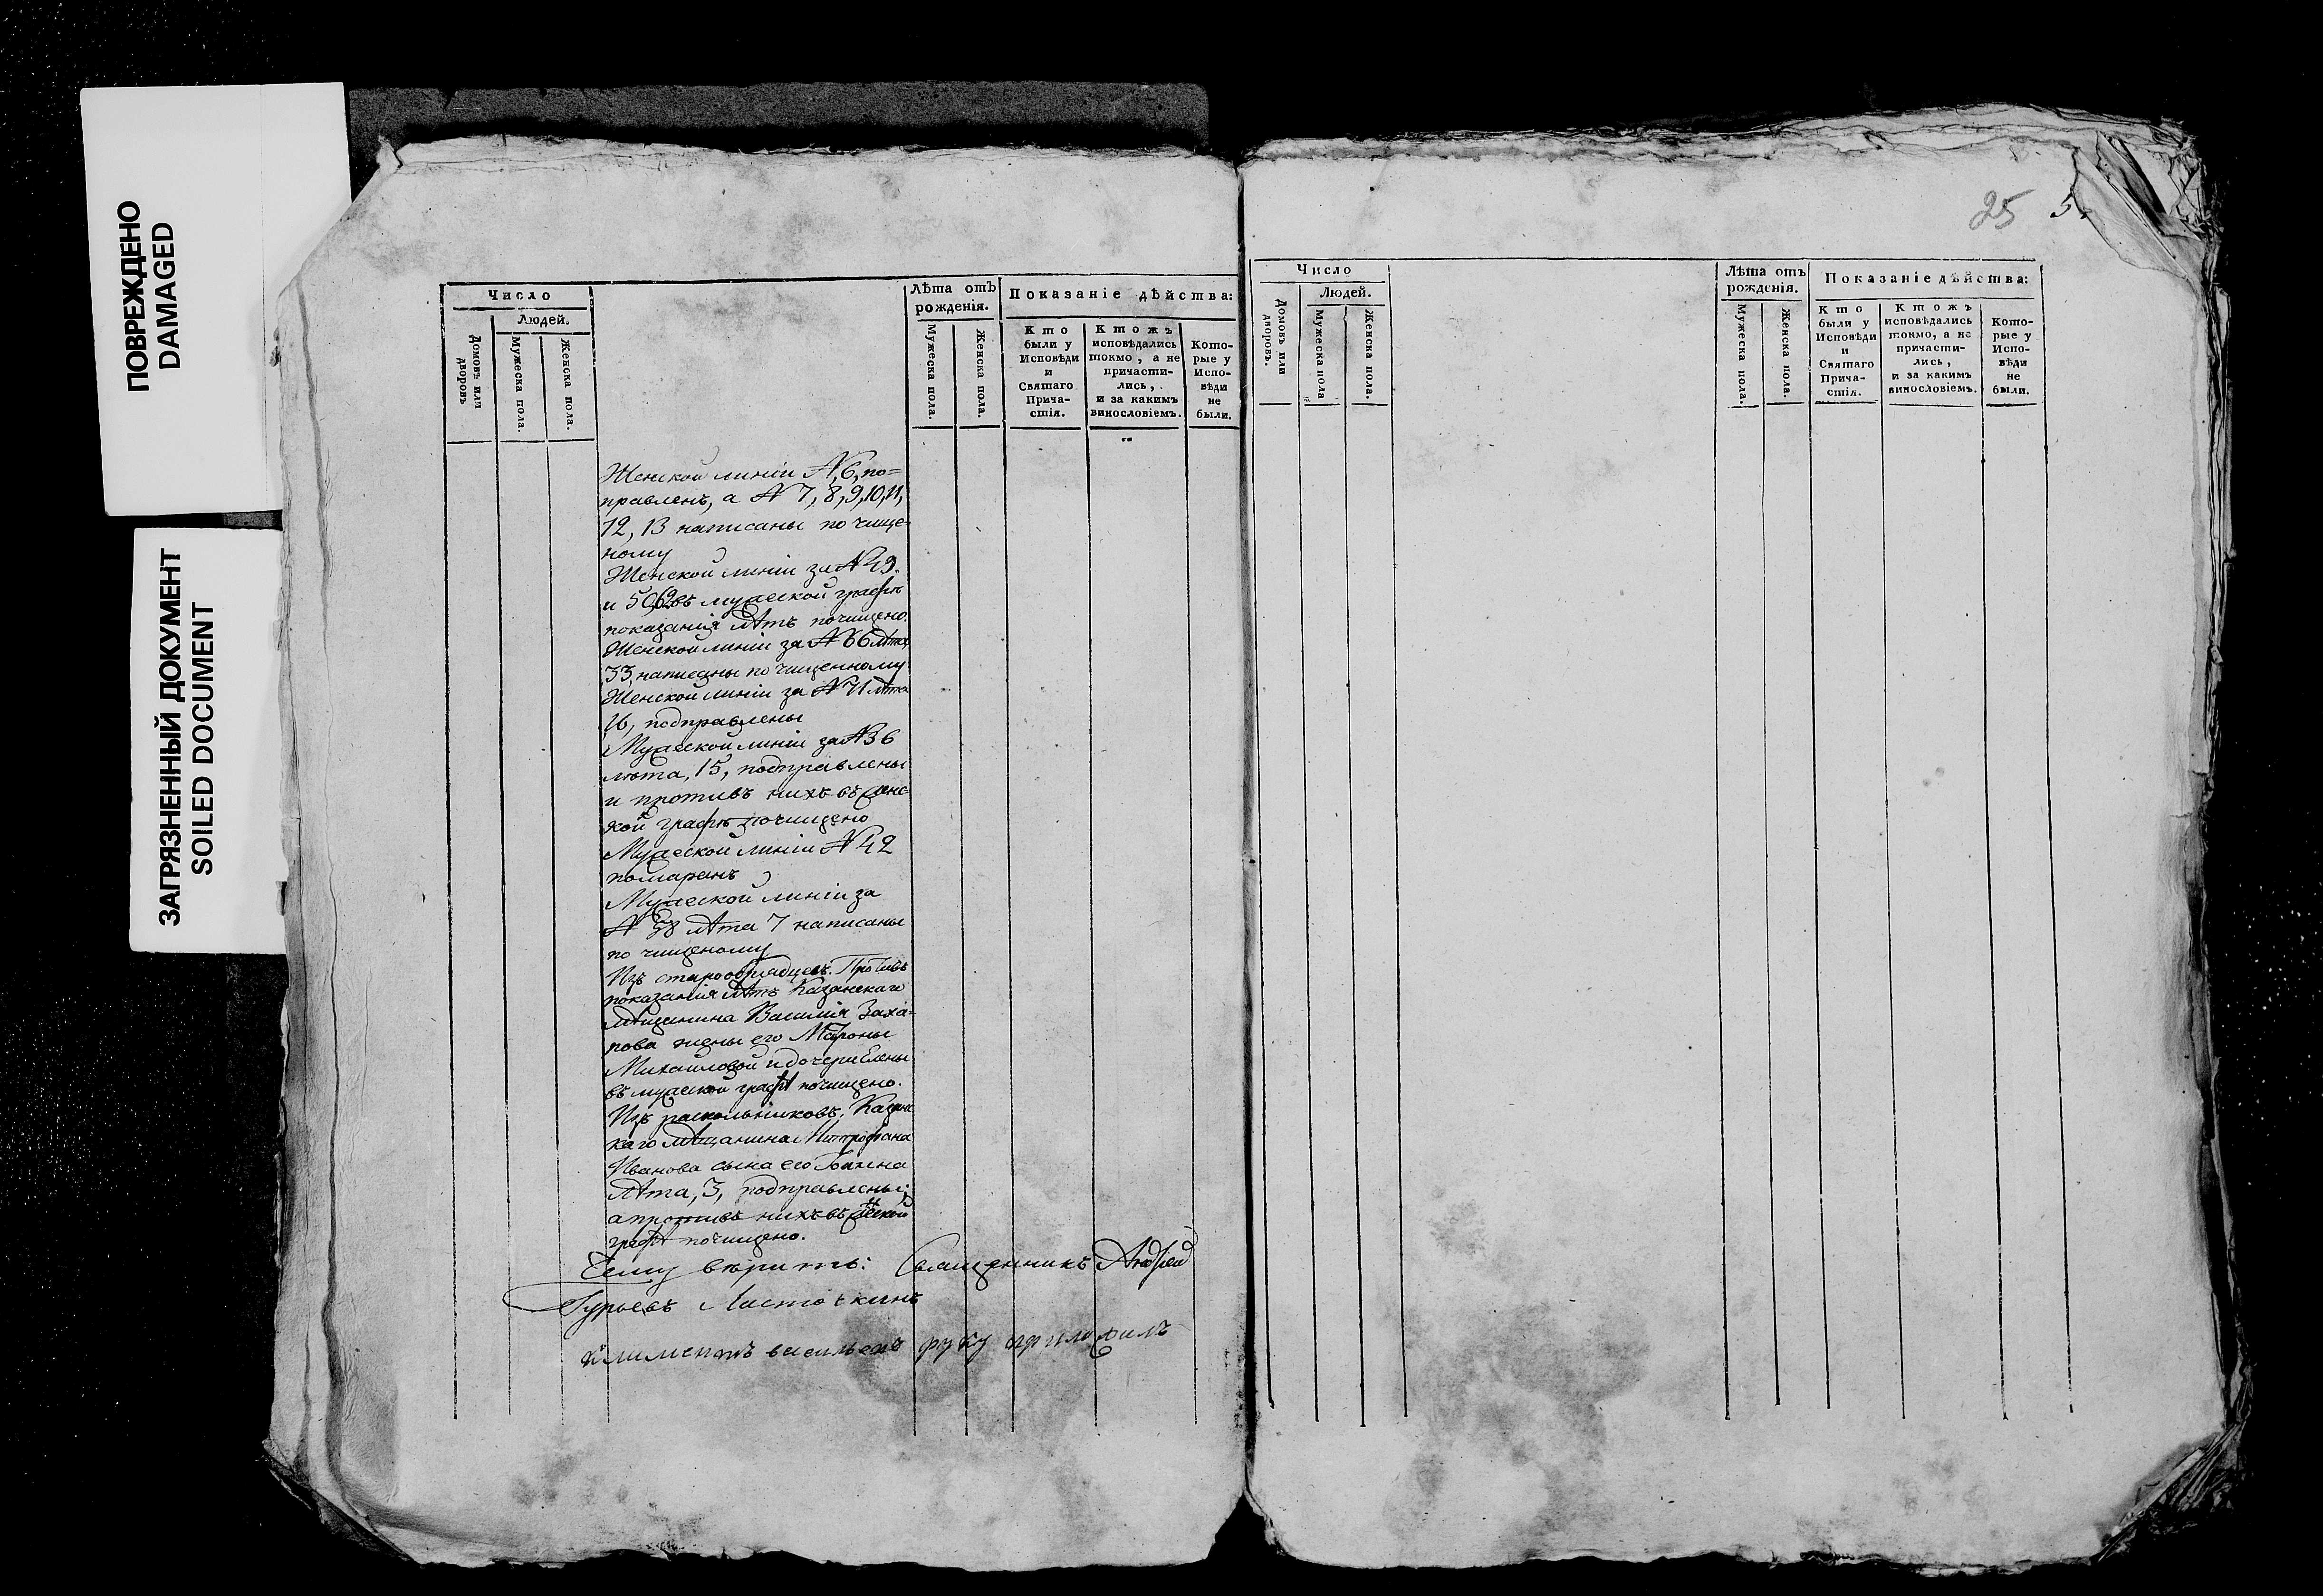 ПОВРЕЖДЕНО
DAMAGED
ЗАГРЯЗНЕННЫЙ ДОКУМЕНТ
SOILED DOCUMENT
Число
Людей.
Домовъ или дворовъ
Мужеска пола.
Женска пола.
Лѣта отъ рожденія.
Мужеска пола.
Женска пола.
Показаніе дѣйства:
Кто были у Исповѣди и Святаго Прича-стія.
Ктожъ исповѣдались токмо, а не причасти-лись, и за какимъ винословіемъ.
Кото-рые у Испо-вѣди не были.
Женской линіи № 6, по=
правленъ, а № 7, 8, 9, 10, 11,
12, 13 написаны по чище=
ному
Женской линіи за № 49.
и 50, въ мужеской графѣ
показанія лѣтъ почищено.
Женской линіи за № 66 лѣта
33, написаны по чищенному
Женской линіи за № 71 лѣта
16, подправлены
Мужеской линіи за № 36
лѣта, 15, подправлены
и противъ нихъ въ женс-
кой графѣ почищено
Мужеской линіи № 42
помаранъ
Мужеской линіи за
№ 58 лѣта 7 написаны
по чищеному
Изъ старообрядцевъ. Противъ
показанія лѣтъ Казанскаго
мѣщанина Василія Заха=
рова жены его Матроны
Михайловой и дочери Елены
въ мужеской графѣ почищено.
Изъ раскольниковъ, Казанс
каго мѣщанина Митрофана
Иванова сына его
лѣта, 3, подправлены;
а противъ нихъ въ женской
графѣ почищено.
Сему вѣрить: Священникъ Андрей
Гурьевъ Листочкинъ
климентъ васильевъ руку приложилъ
25 5
Число
Людей.
Домовъ или дворовъ.
Мужеска пола
Женска пола.
Лѣта отъ рожденія.
Мужеска пола.
Женска пола.
Показаніе дѣйства:
Кто были у Исповѣди и Святаго Прича-стія.
Ктожъ исповѣдались токмо, а не причасти-лись, и за какимъ винословіемъ.
Кото-рые у Испо-вѣди не были.